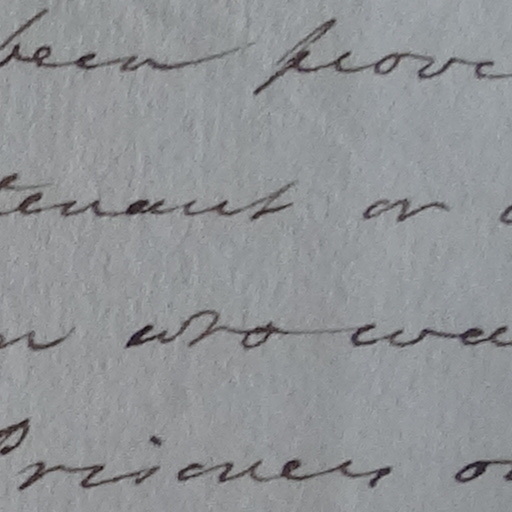 been prov
tenant or
who was
Prisoner